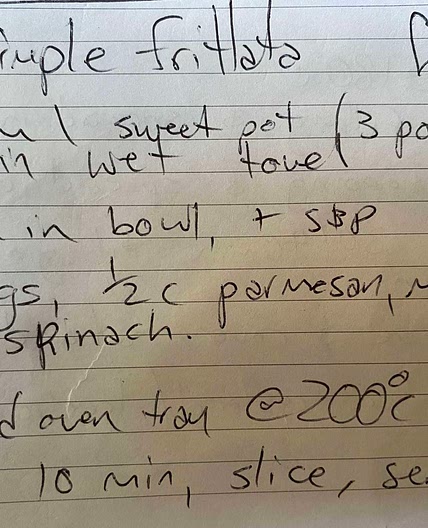 imple frittata
1 sweet pot (3 po
in wet towel
in bowl, + S&P
gs, 1/2 c parmesan,
spinach.
d oven tray @ 200°c
10 min, slice, se